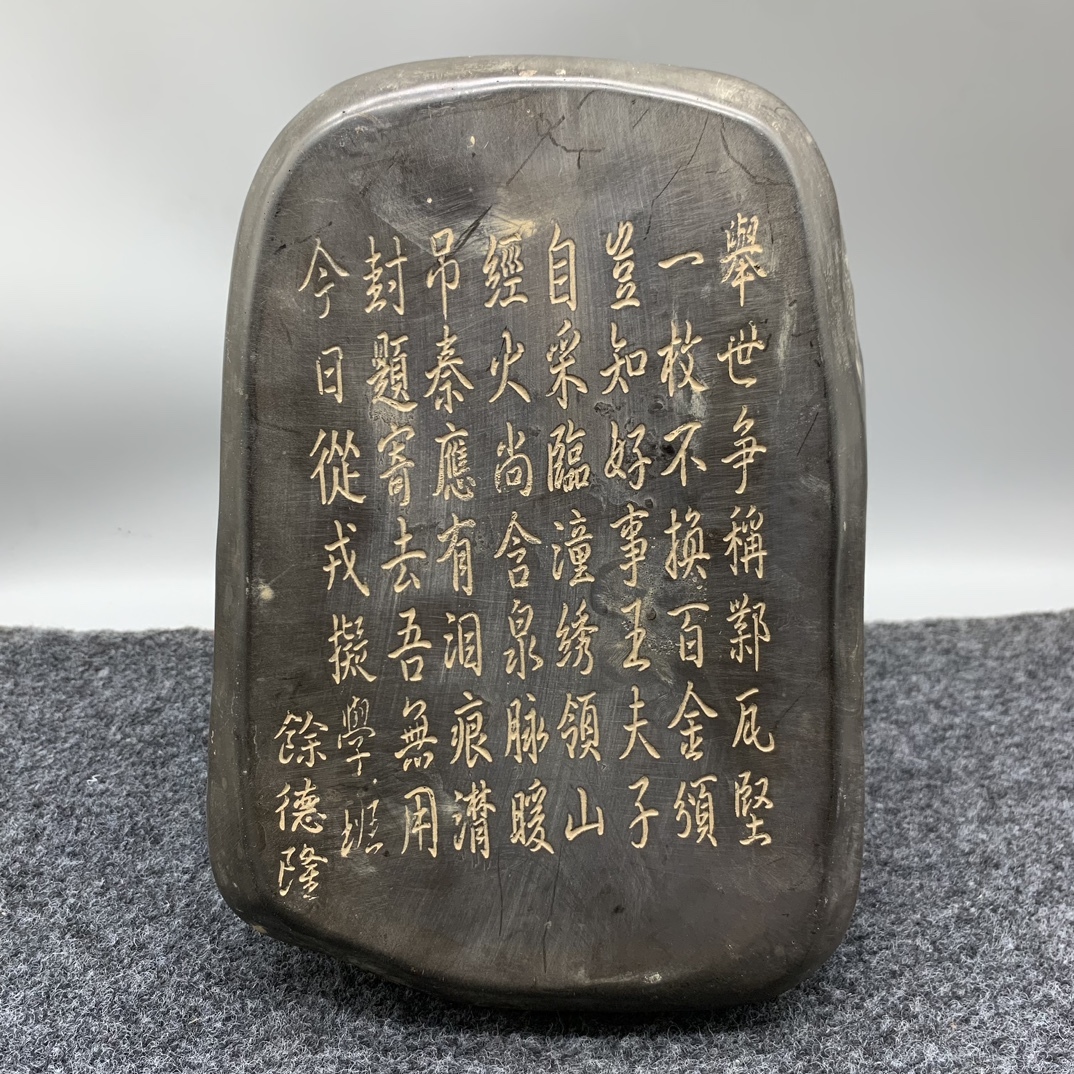 舉世争稱鄴瓦堅
一枚不換百金頒
豈知好事王夫子
自采臨潼绣領山
經火尚含泉脉暖
吊秦應有泪痕潸
封題寄去吾無用
今日從戎擬學班
餘德隆